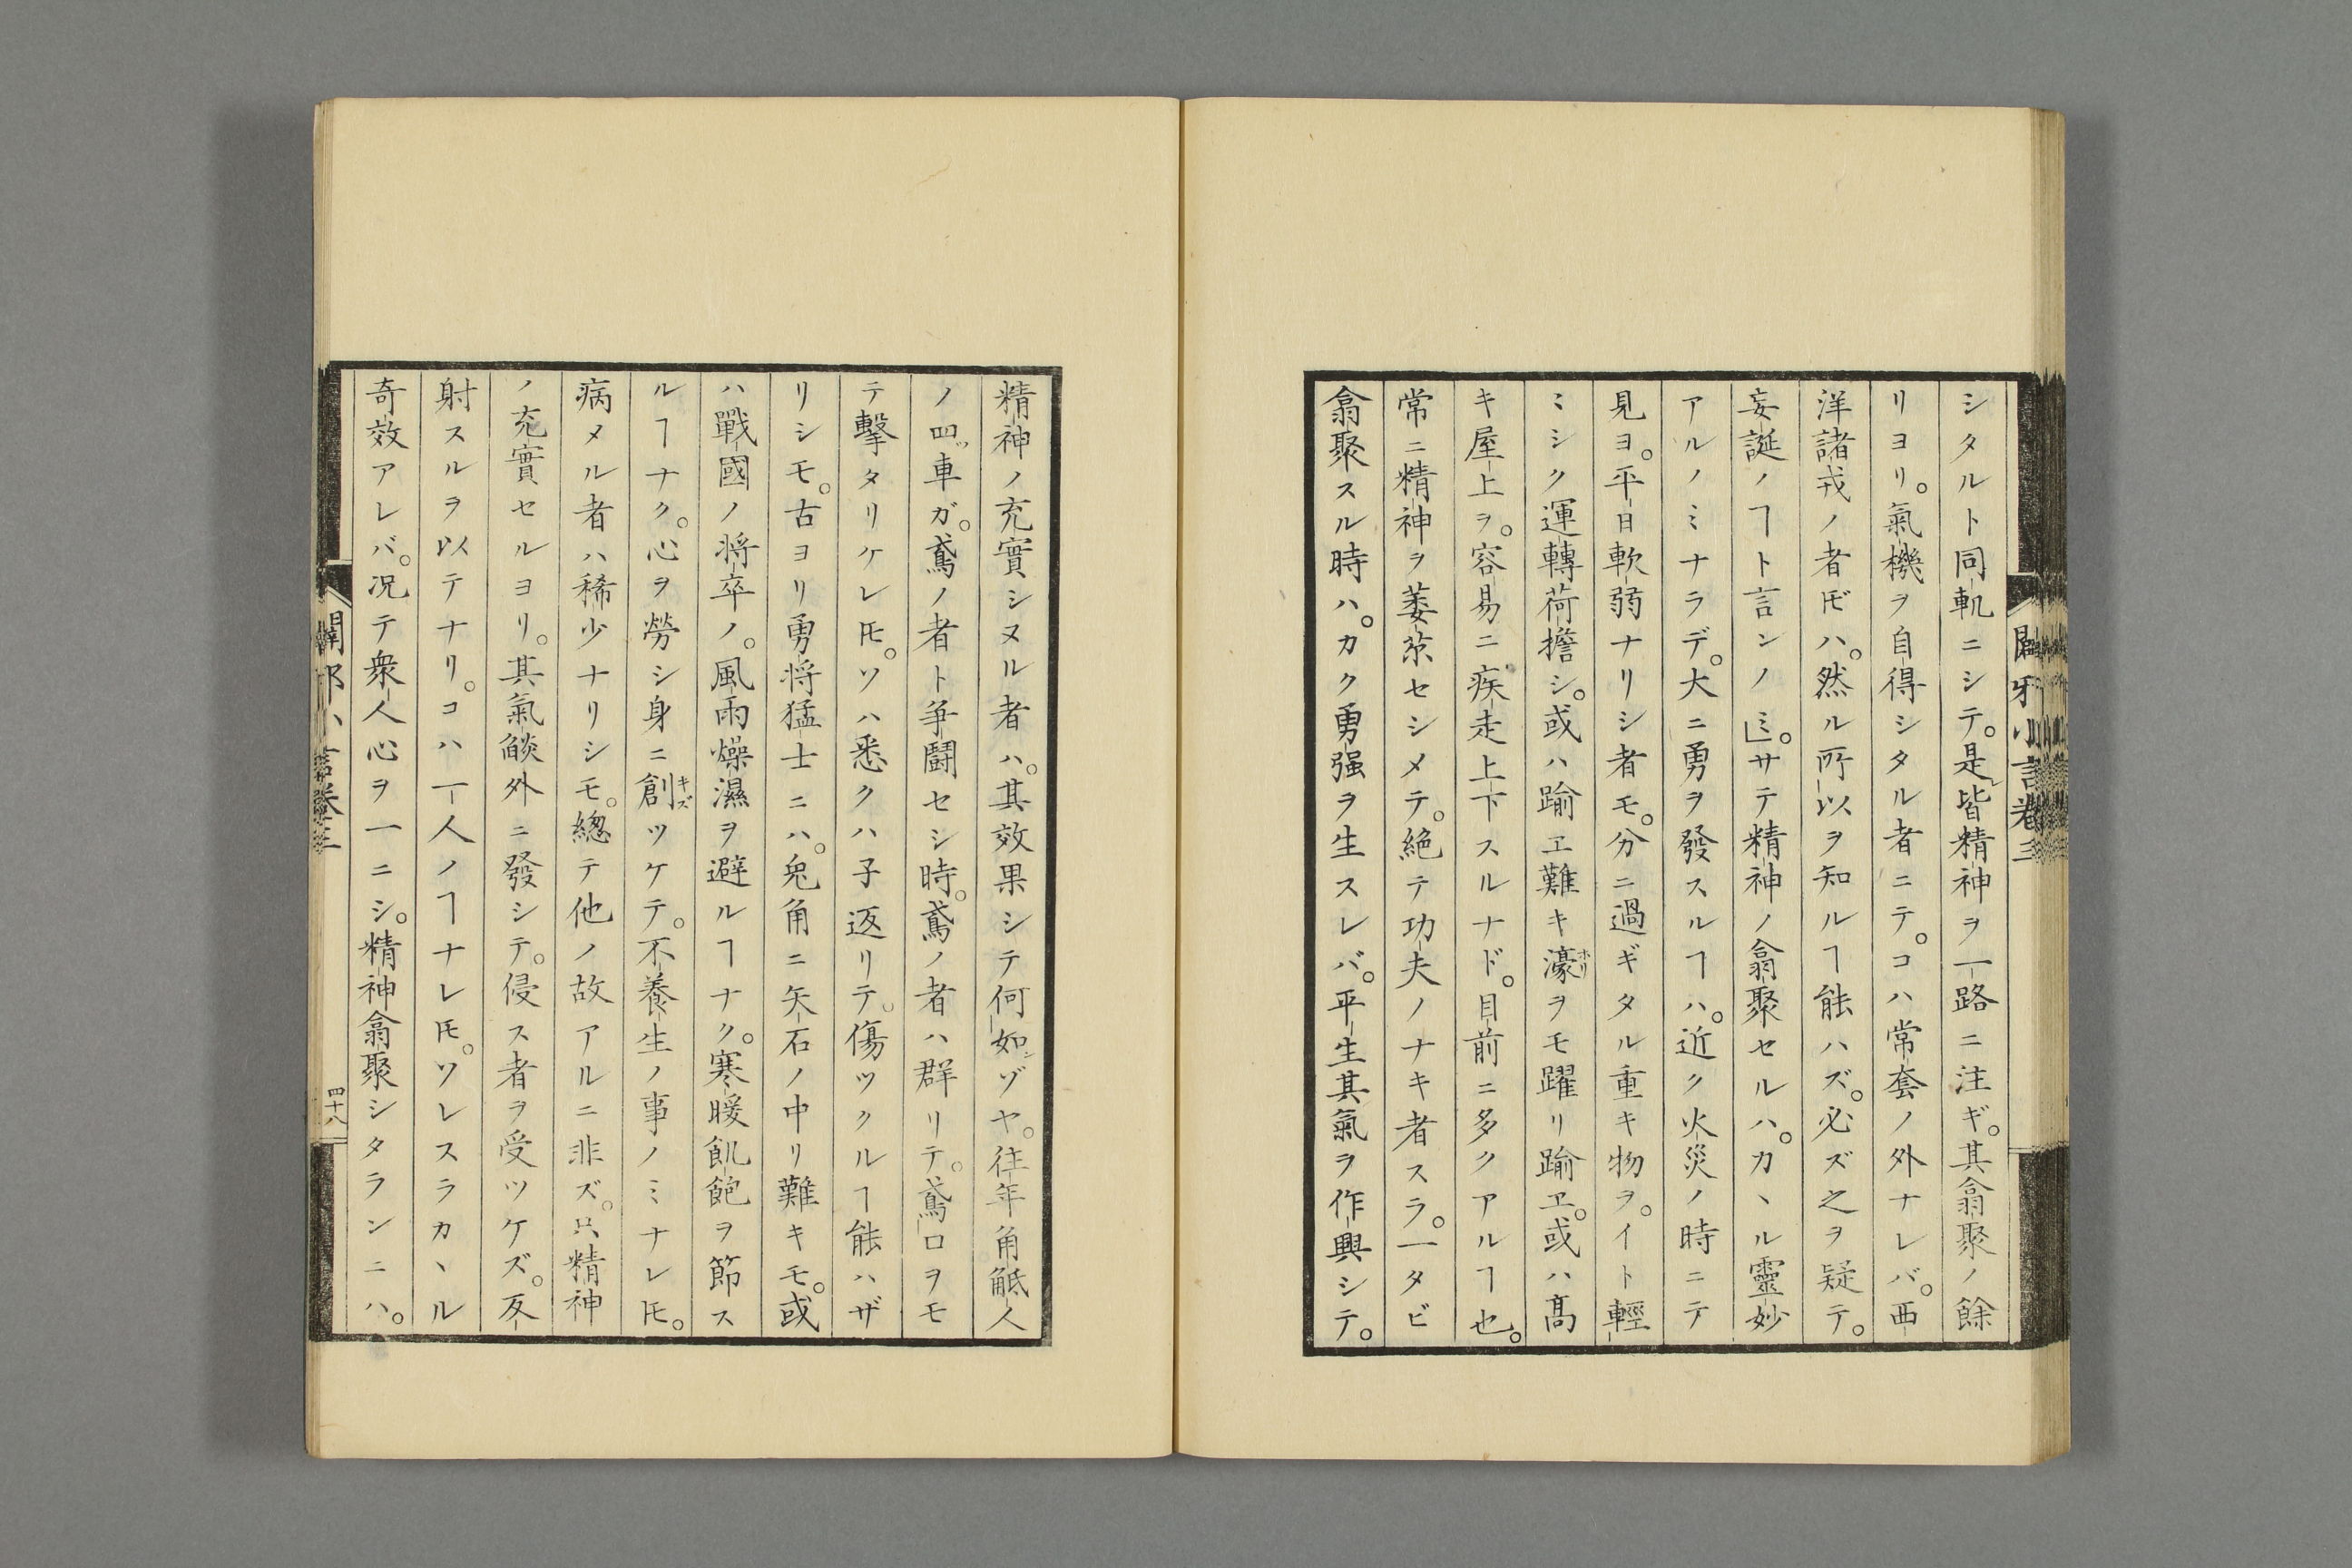 シタルト同軌ニシテ。是皆精神ヲ一路ニ注ギ。其翕聚ノ餘
リヨリ。氣機ヲ自得シタル者ニテ。コハ常套ノ外ナレバ。西
洋諸戎ノ者𪜈ハ。然ル所以ヲ知ルヿ能ハズ。必ズ之ヲ疑テ。
妄誕ノヿト言ンノミ」。サテ精神ノ翕聚セルハ。カヽル靈妙
アルノミナラデ。大ニ勇ヲ發スルヿハ。近ク火災ノ時ニテ
見ヨ。平日軟弱ナリシ者モ。分ニ過ギタル重キ物ヲ。イト輕
ミシク運轉荷擔シ。或ハ踰エ難キ濠ホリヲモ躍リ踰エ。或ハ髙
キ屋上ヲ。容易ニ疾走上下スルナド。目前ニ多クアルヿ也。
常ニ精神ヲ萎苶セシメテ。絶テ功夫ノナキ者スラ。一タビ
翕聚スル時ハ。カク勇强ヲ生スレバ。平生其氣ヲ作興シテ。
闢邪小言卷三
精神ノ充實シヌル者ハ。其效果シテ何如ゾヤ。往年角觝人
ノ四ッ車ガ。鳶ノ者ト爭鬪セシ時。鳶ノ者ハ群リテ。鳶口ヲモ
テ擊タリケレ𪜈。ソハ悉クハ子返リテ。傷ツクルヿ能ハザ
リシモ。古ヨリ勇将猛士ニハ。兕角ニ矢石ノ中リ難キモ。或
ハ戰國ノ将卒ノ。風雨燥濕ヲ避ルヿナク。寒暖飢飽ヲ節ス
ルヿナク。心ヲ勞シ身ニ創キズツケテ。不養生ノ事ノミナレ𪜈。
病メル者ハ稀少ナリシモ。總テ他ノ故アルニ非ズ。只精神
ノ充實セルヨリ。其氣燄外ニ發シテ。侵ス者ヲ受ツケズ。反
射スルヲ以テナリ。コハ一人ノヿナレ𪜈。ソレスラカヽル
奇效アレバ。况テ衆人心ヲ一ニシ。精神翕聚シタランニハ。
闢邪小言卷三
四十八